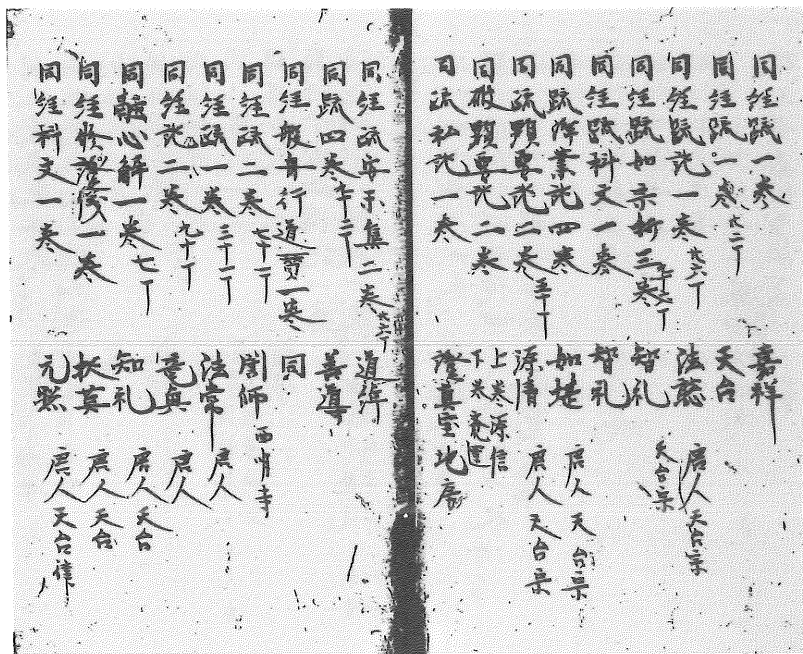 同経疏一巻 嘉祥
同経疏一巻 六二丁 天台
同経疏記一巻 六六丁 法聡 唐人天台宗
同経疏如宗鈔三巻 智礼 天台宗
同経疏科文一巻 智礼
同疏浄業記四巻 如堪 唐人天台宗
同疏顕要記二巻 五十丁 源清 唐人天台宗
同破顕要記二巻 上巻源信 下巻覚運
同疏私記一巻 證真宝地房
同経疏安楽集二巻 六六丁 道綽
同疏四巻 九十二丁 善導
同経般舟行道賛一巻 同
同経疏二巻 七十二丁 劉師 西明寺
同経疏一巻 三十一丁 法常 唐人
同経記二巻 九十丁 唐人
同融心解一巻 七丁 知礼 唐人天台
同経 一巻 唐人天台
同経科文一巻 元照 唐人天台律